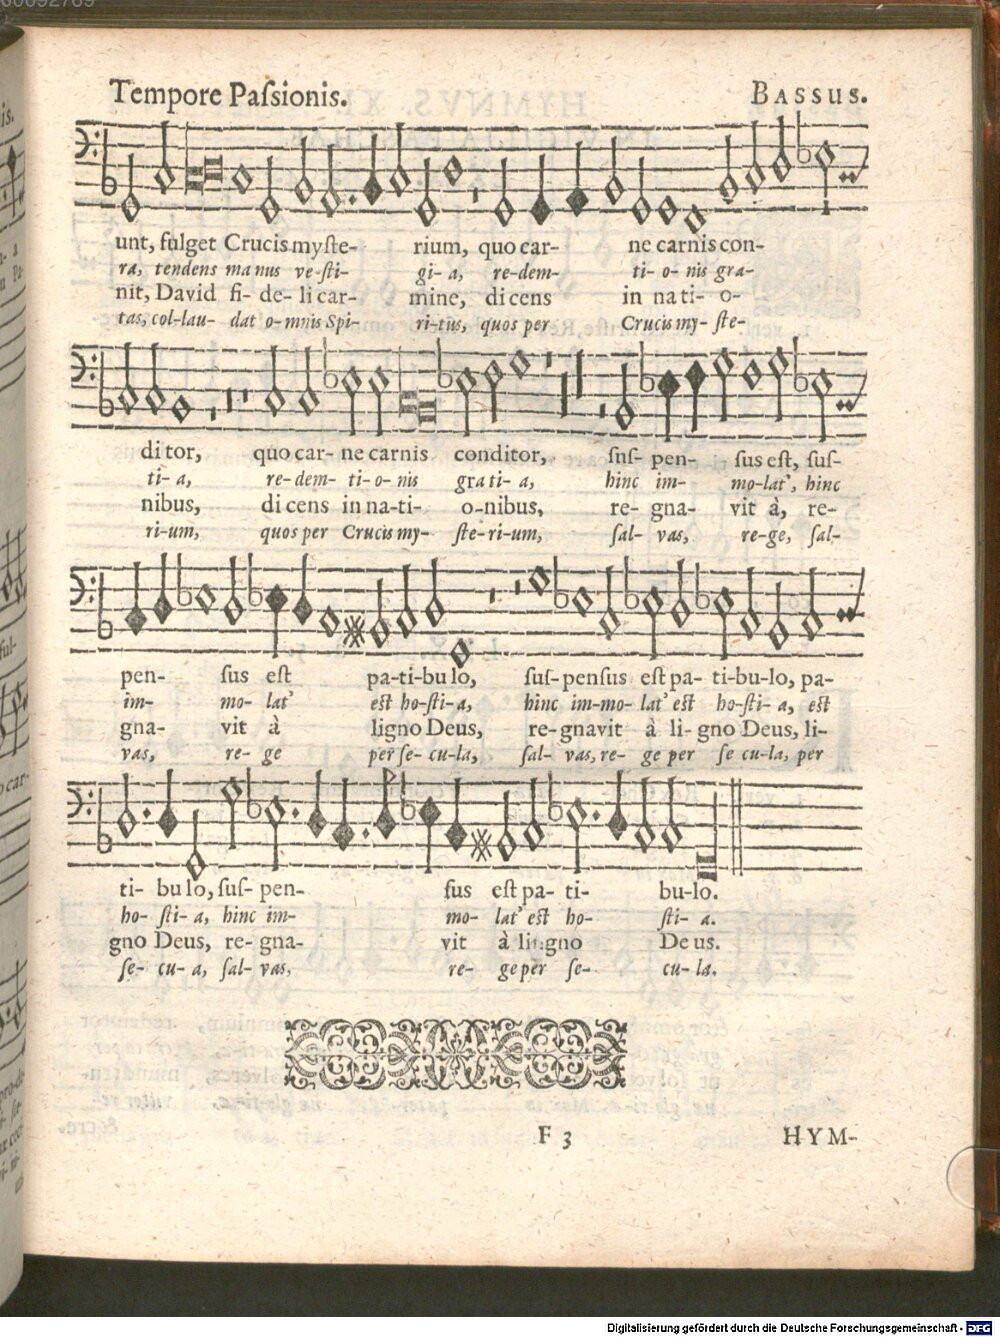 Tempore Paſsionis. BASSUS.
unt, fulget Crucis myſte- rium, quo car- ne carnis con-
ra, tendens manus ve-ſti- gi- a, re-dem- ti- o- nis gra-
nit, David fi- de- li car- mine, dicens in nati- o-
tas, col-lau- dat o-mnis Spi- ri-tus, quos per Crucis my- ſte-
ditor, quo car- ne carnis conditor, ſuſ- pen- ſus eſt, ſuſ-
ti- a, re-dem- ti- o- nis grati- a, hinc im- mo-lat', hinc
nibus, dicens in na-ti- o-nibus, re- gna- vit à, re-
ri-um, quos per Crucis my- ſte-ri-um, ſal- vas, re-ge, ſal-
pen- ſus eſt pa-ti-bulo, ſuſ-penſus eſt pa- ti-bu-lo, pa-
im- mo- lat' eſt ho-ſti-a, hinc im-mo- lat' eſt ho-ſti- a, eſt
gna- vit à ligno Deus, re-gnavit à li- gno Deus, li-
vas, re- ge per ſe- cu-la, ſal- vas, re- ge per ſe cu-la, per
ti- bulo, ſuſ- pen- ſus eſt pa- ti- bu-lo.
ho- ſti- a, hinc im- mo- lat' eſt ho- ſti- a.
gno Deus, re- gna- vit à gno Deus.
ſe- cu- a, ſal- vas, re- ge per ſe- cu- la.
F 3 HYM-
Digitalisierung gefördert durch die Deutsche Forschungsgemeinschaft - DFG